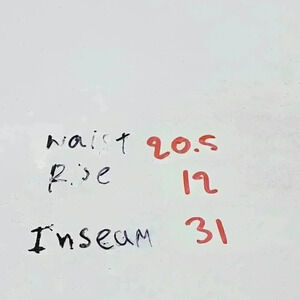 waist 20.5
Rise 12
Inseam 31